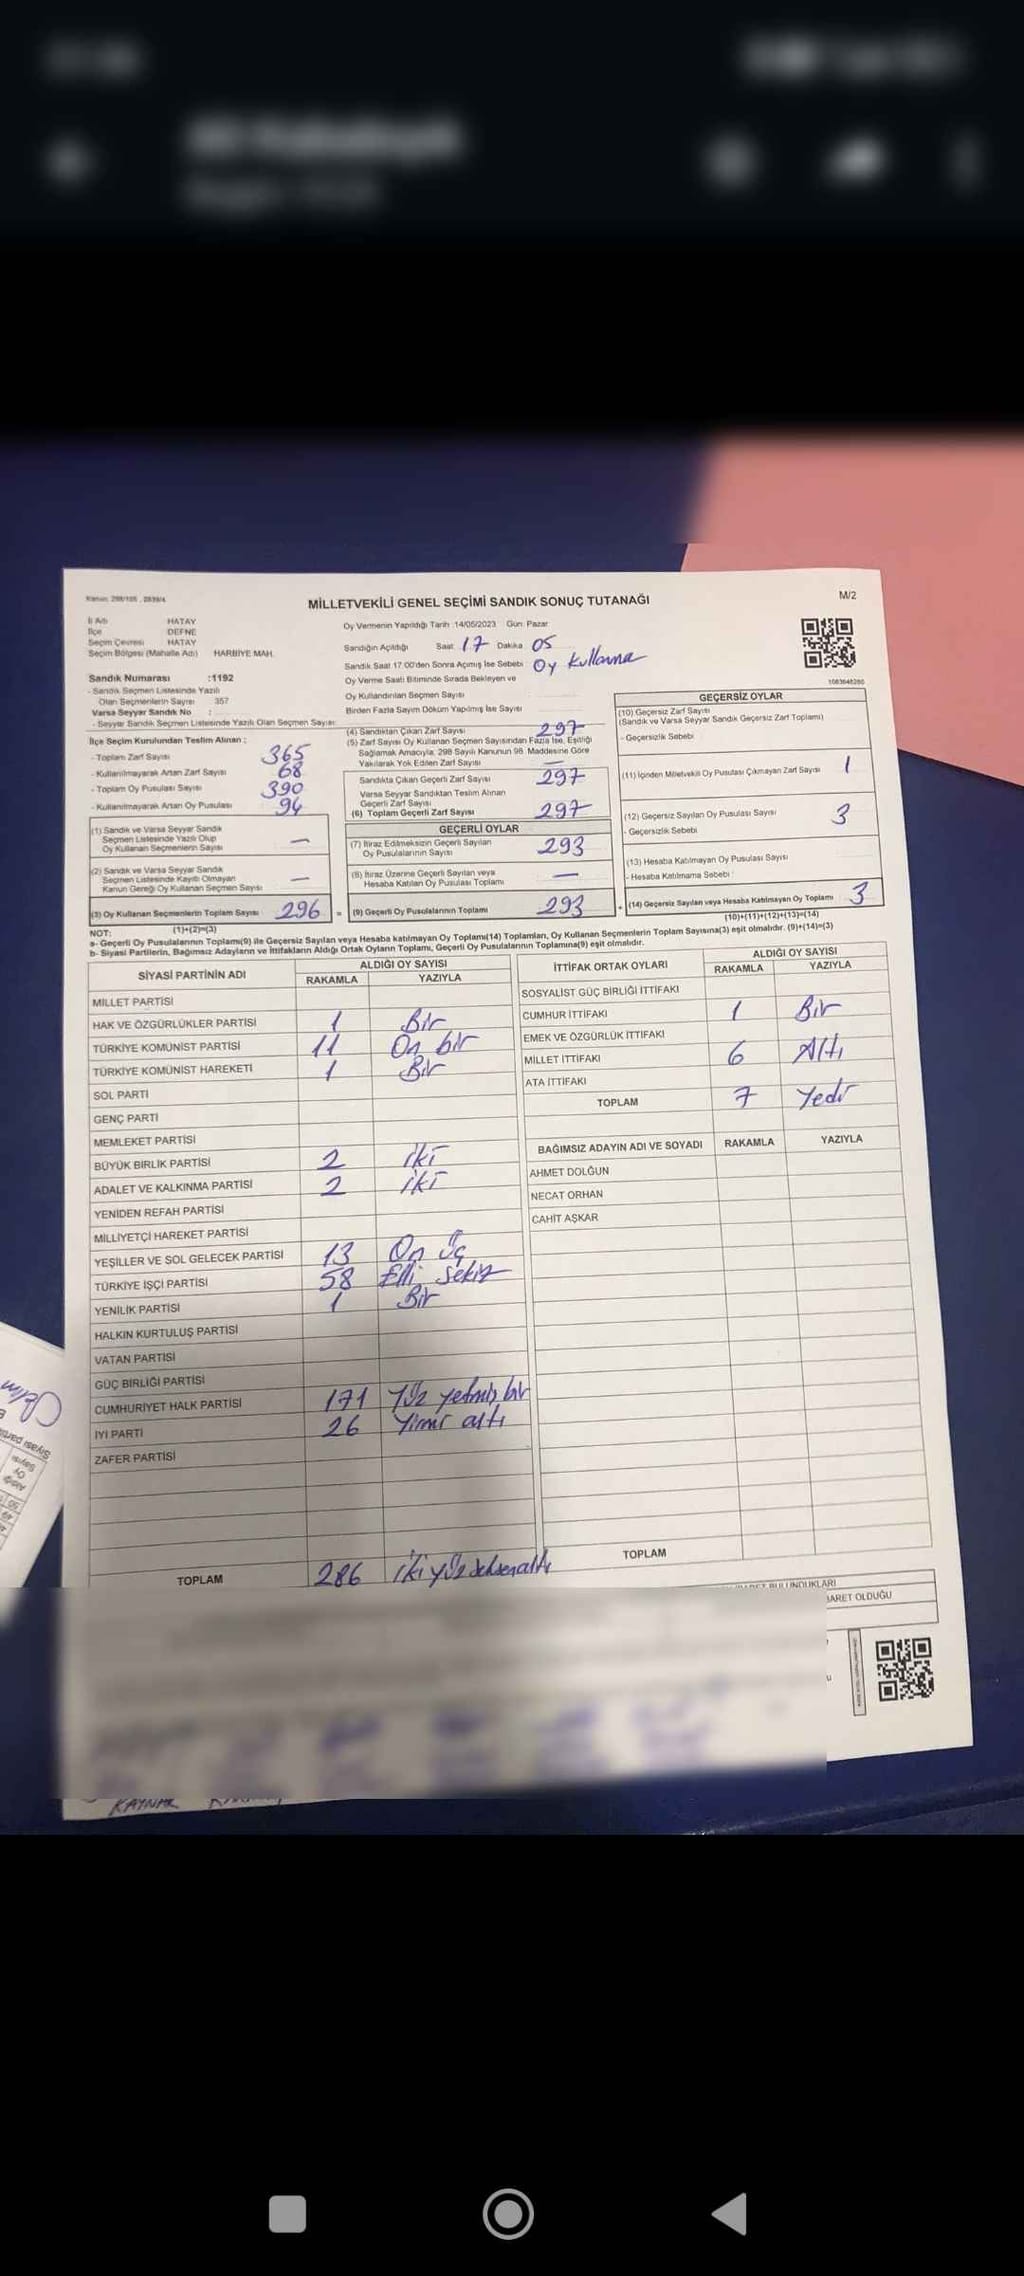 Kanun: 298/105 , 2839/4
MİLLETVEKİLİ GENEL SEÇİMİ SANDIK SONUÇ TUTANAĞI
M/2
İl Adı HATAY
İlçe DEFNE
Seçim Çevresi HATAY
Seçim Bölgesi (Mahalle Adı) HARBİYE MAH.
Sandık Numarası :1192
- Sandık Seçmen Listesinde Yazılı
Olan Seçmenlerin Sayısı 357
Varsa Seyyar Sandık No :
- Seyyar Sandık Seçmen Listesinde Yazılı Olan Seçmen Sayısı:
Oy Vermenin Yapıldığı Tarih :14/05/2023 Gün: Pazar
Sandığın Açıldığı Saat 17 Dakika 05
Sandık Saat 17.00'den Sonra Açılmış İse Sebebi Oy kullanma
Oy Verme Saati Bitiminde Sırada Bekleyen ve
Oy Kullandırılan Seçmen Sayısı
Birden Fazla Sayım Döküm Yapılmış İse Sayısı
İlçe Seçim Kurulundan Teslim Alınan ;
- Toplam Zarf Sayısı 365
- Kullanılmayarak Artan Zarf Sayısı 68
- Toplam Oy Pusulası Sayısı 390
- Kullanılmayarak Artan Oy Pusulası 94
(1) Sandık ve Varsa Seyyar Sandık
Seçmen Listesinde Yazılı Olup
Oy Kullanan Seçmenlerin Sayısı —
(2) Sandık ve Varsa Seyyar Sandık
Seçmen Listesinde Kayıtlı Olmayan
Kanun Gereği Oy Kullanan Seçmen Sayısı —
(3) Oy Kullanan Seçmenlerin Toplam Sayısı 296 =
(1)+(2)=(3)
(4) Sandıktan Çıkan Zarf Sayısı 297
(5) Zarf Sayısı Oy Kullanan Seçmen Sayısından Fazla İse, Eşitliği
Sağlamak Amacıyla, 298 Sayılı Kanunun 98. Maddesine Göre
Yakılarak Yok Edilen Zarf Sayısı —
Sandıkta Çıkan Geçerli Zarf Sayısı 297
Varsa Seyyar Sandıktan Teslim Alınan
Geçerli Zarf Sayısı
(6) Toplam Geçerli Zarf Sayısı 297
GEÇERLİ OYLAR
(7) İtiraz Edilmeksizin Geçerli Sayılan
Oy Pusulalarının Sayısı 293
(8) İtiraz Üzerine Geçerli Sayılan veya
Hesaba Katılan Oy Pusulası Toplamı —
(9) Geçerli Oy Pusulalarının Toplamı 293 +
GEÇERSİZ OYLAR
(10) Geçersiz Zarf Sayısı
(Sandık ve Varsa Seyyar Sandık Geçersiz Zarf Toplamı)
- Geçersizlik Sebebi
(11) İçinden Milletvekili Oy Pusulası Çıkmayan Zarf Sayısı 1
(12) Geçersiz Sayılan Oy Pusulası Sayısı 3
- Geçersizlik Sebebi
(13) Hesaba Katılmayan Oy Pusulası Sayısı
- Hesaba Katılmama Sebebi
(14) Geçersiz Sayılan veya Hesaba Katılmayan Oy Toplamı 3
(10)+(11)+(12)+(13)=(14)
NOT:
a- Geçerli Oy Pusulalarının Toplamı(9) ile Geçersiz Sayılan veya Hesaba katılmayan Oy Toplamı(14) Toplamları, Oy Kullanan Seçmenlerin Toplam Sayısına(3) eşit olmalıdır. (9)+(14)=(3)
b- Siyasi Partilerin, Bağımsız Adayların ve İttifakların Aldığı Ortak Oyların Toplamı, Geçerli Oy Pusulalarının Toplamına(9) eşit olmalıdır.
SİYASİ PARTİNİN ADI ALDIĞI OY SAYISI
RAKAMLA YAZIYLA
MİLLET PARTİSİ
HAK VE ÖZGÜRLÜKLER PARTİSİ 1 Bir
TÜRKİYE KOMÜNİST PARTİSİ 11 On bir
TÜRKİYE KOMÜNİST HAREKETİ 1 Bir
SOL PARTİ
GENÇ PARTİ
MEMLEKET PARTİSİ
BÜYÜK BİRLİK PARTİSİ 2 iki
ADALET VE KALKINMA PARTİSİ 2 iki
YENİDEN REFAH PARTİSİ
MİLLİYETÇİ HAREKET PARTİSİ
YEŞİLLER VE SOL GELECEK PARTİSİ 13 On Üç
TÜRKİYE İŞÇİ PARTİSİ 58 Elli sekiz
YENİLİK PARTİSİ 1 Bir
HALKIN KURTULUŞ PARTİSİ
VATAN PARTİSİ
GÜÇ BİRLİĞİ PARTİSİ
CUMHURİYET HALK PARTİSİ 171 Yüz yetmiş bir
İYİ PARTİ 26 Yirmi altı
ZAFER PARTİSİ
TOPLAM 286 iki yüz seksen altı
İTTİFAK ORTAK OYLARI ALDIĞI OY SAYISI
RAKAMLA YAZIYLA
SOSYALİST GÜÇ BİRLİĞİ İTTİFAKI
CUMHUR İTTİFAKI 1 Bir
EMEK VE ÖZGÜRLÜK İTTİFAKI
MİLLET İTTİFAKI 6 Altı
ATA İTTİFAKI
TOPLAM 7 Yedi
BAĞIMSIZ ADAYIN ADI VE SOYADI RAKAMLA YAZIYLA
AHMET DOLĞUN
NECAT ORHAN
CAHİT AŞKAR
TOPLAM
BULUNDUKLARI
BARET OLDUĞU
KAYNAR